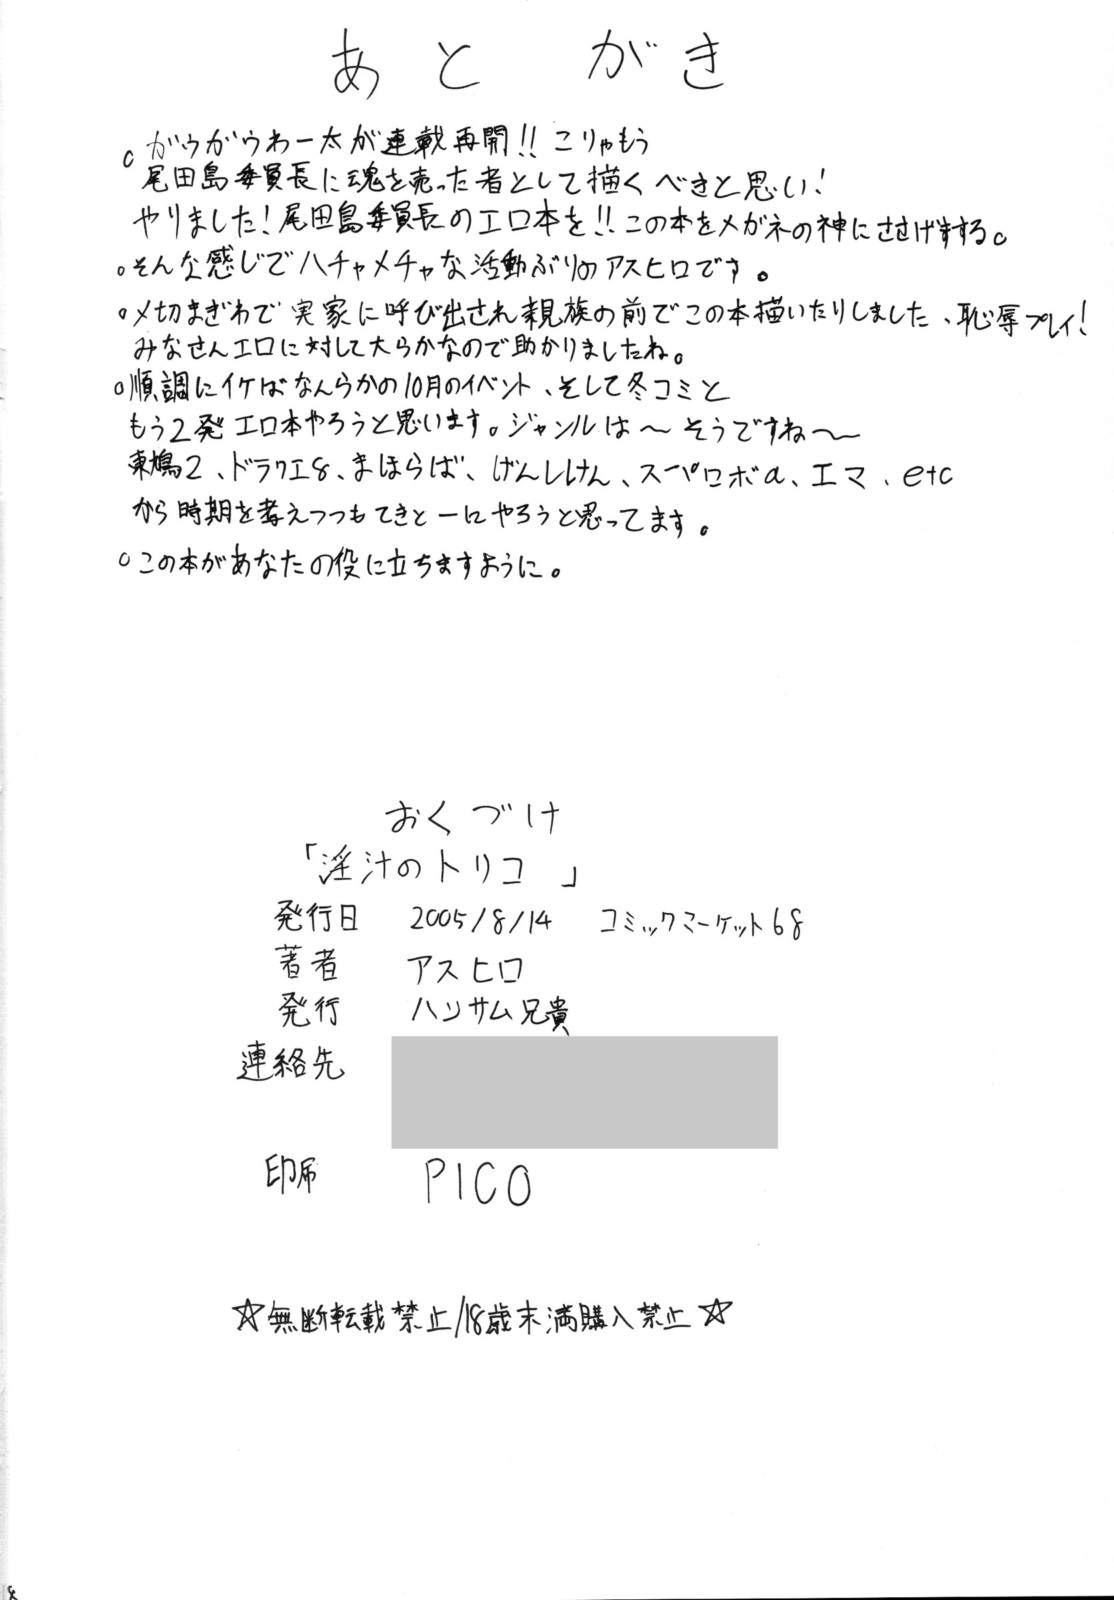 あとがき
○ガウガウわー太が連載再開!!こりゃもう
尾田島委員長に魂を売った者として描くべきと思い!
やりました!尾田島委員長のエロ本を!!この本をメガネの神にささげまする。
○そんな感じでハチャメチャな活動ぶりのアスヒロです。
○〆切まぎわで実家に呼び出され親族の前でこの本描いたりしました、恥辱プレイ!
みなさんエロに対して大らかなので助かりましたね。
○順調にイケばなんらかの10月のイベント、そして冬コミと
もう2発エロ本やろうと思います。ジャンルは〜そうですね〜
東鳩2、ドラクエ8、まほらば、げんしけん、スーパロボα、エマ、etc
から時期を考えつつもてきとーにやろうと思ってます。
○この本があなたの役に立ちますように。
おくづけ
「淫汁のトリコ」
発行日 2005/8/14 コミックマーケット68
著者 アスヒロ
発行 ハンサム兄貴
連絡先
印刷 PICO
☆無断転載禁止/18歳未満購入禁止☆